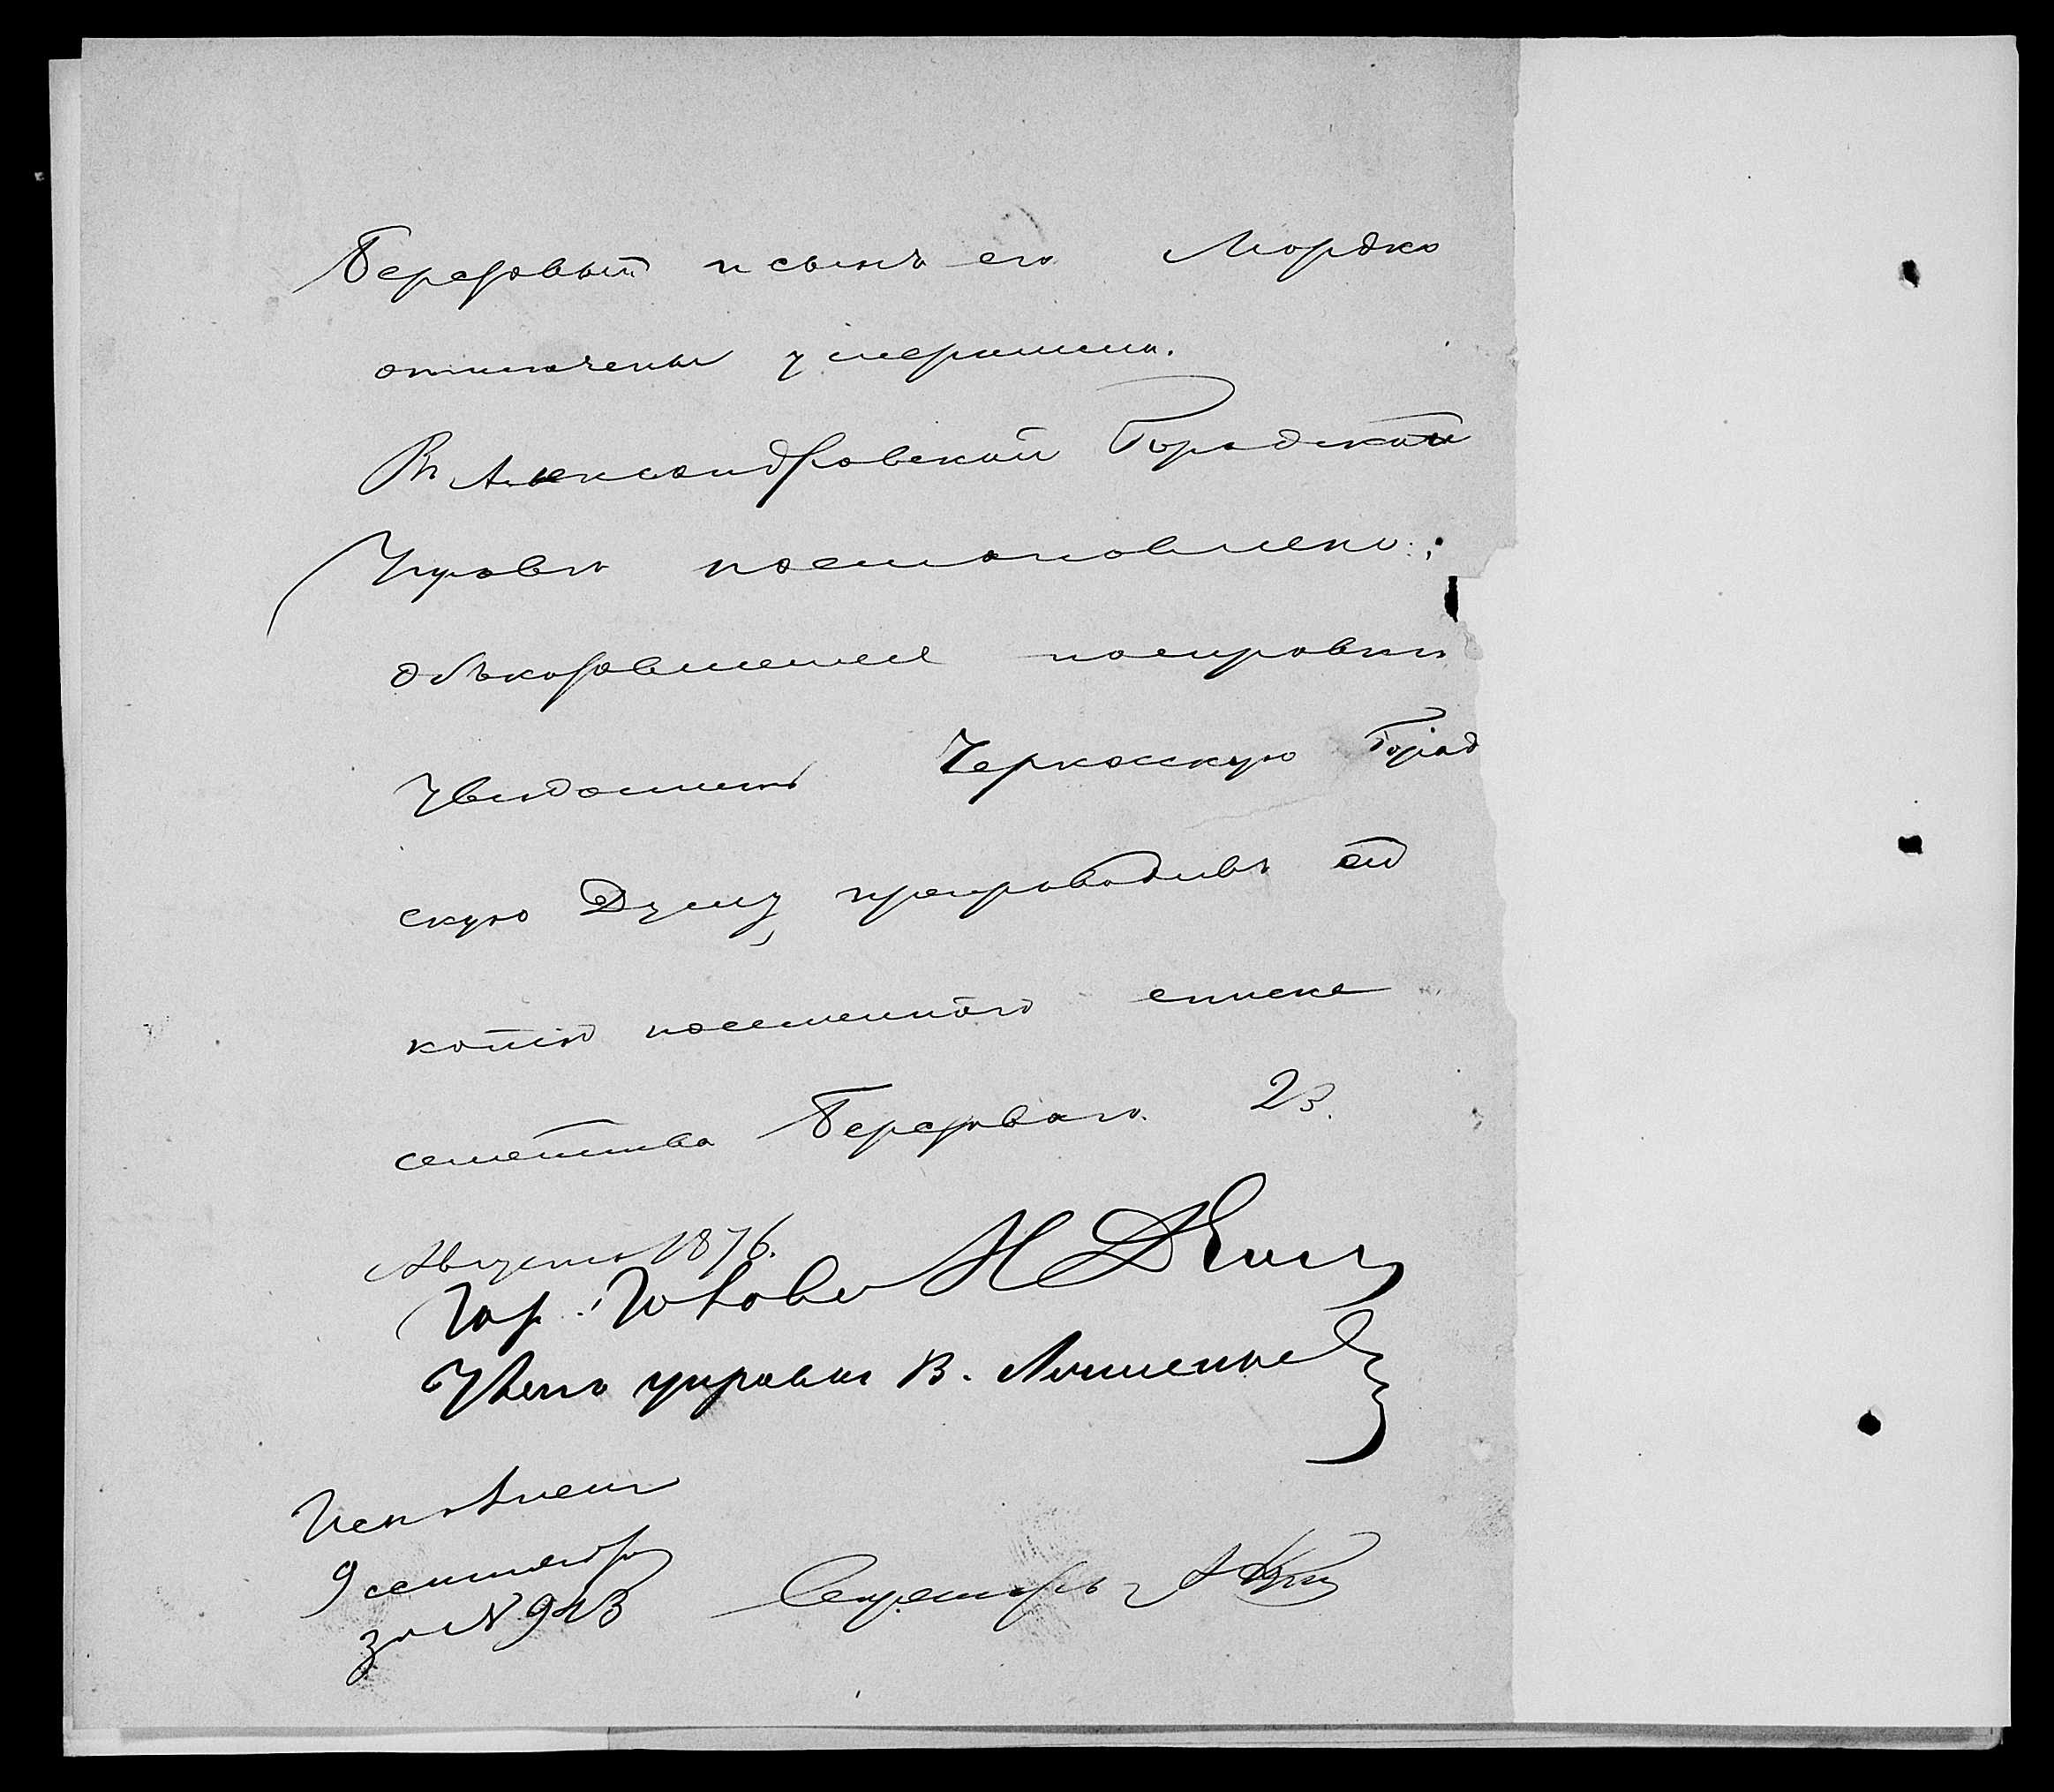 Береговый и сынъ его Мордко
отмѣчены умершими.
Въ Александровской Городской
Управѣ постановлено:
объ оказавшемся по справкѣ
увѣдомить Черкасскую Город
скую Думу, препроводивъ ей
копію посемейнаго списка
семейства Береговаго. 23.
Августа 1876.
Гор. Голова Н
Членъ управы В.
Исполнено
9 сентября
за № 943
Секретарь